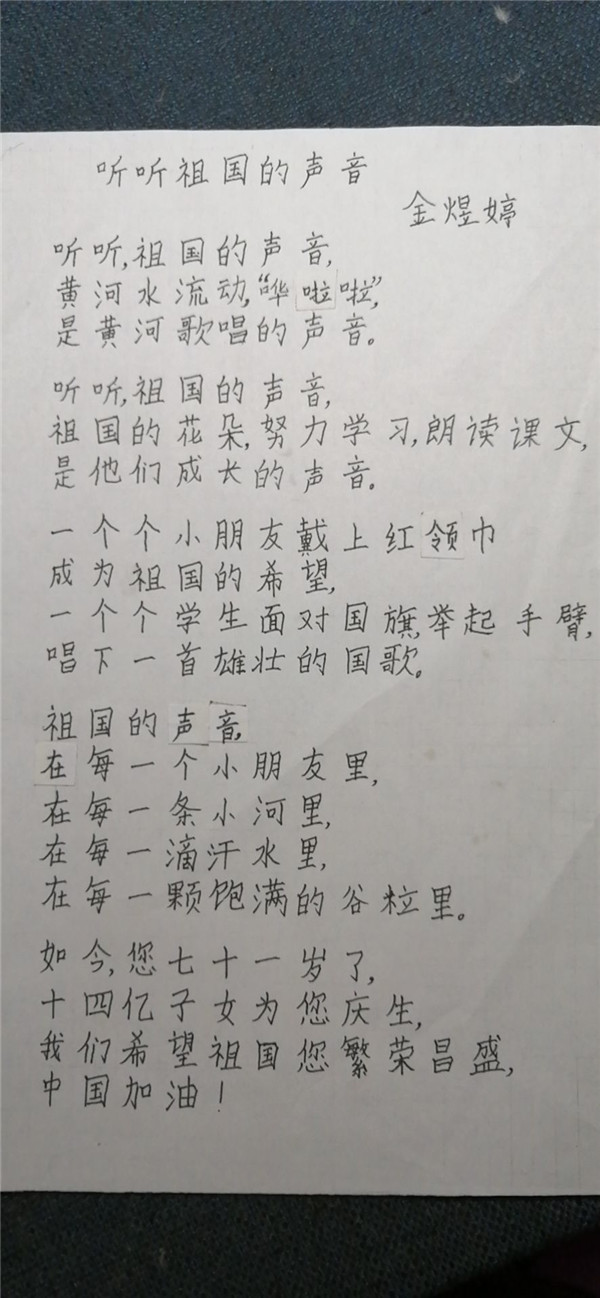 听听祖国的声音
金煜婷
听听,祖国的声音,
黄河水流动,“哗啦啦”,
是黄河歌唱的声音。
听听,祖国的声音,
祖国的花朵,努力学习,朗读课文,
是他们成长的声音。
一个个小朋友戴上红领巾
成为祖国的希望,
一个个学生面对国旗,举起手臂,
唱下一首雄壮的国歌。
祖国的声音,
在每一个小朋友里,
在每一条小河里,
在每一滴汗水里,
在每一颗饱满的谷粒里。
如今,您七十一岁了,
十四亿子女为您庆生,
我们希望祖国您繁荣昌盛,
中国加油!